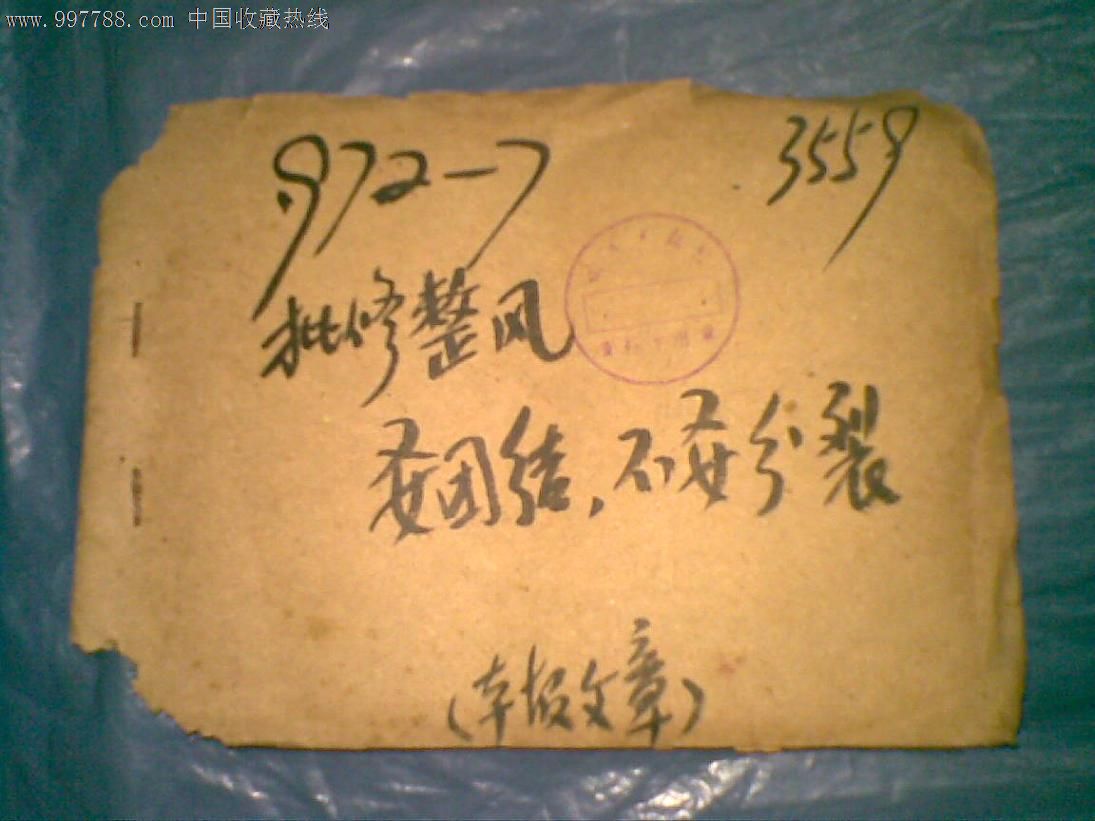 www.997788.com 中国收藏热线
972-7 3559
批修整风
要团结，不要分裂
(本报文章)